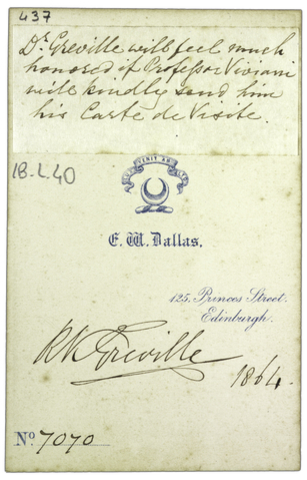 437
Dr. Greville will feel much
honored if Professor Viviani
will kindly send him
his Carte de Visite.
18-L40
E. W. Dallas.
125, Princes Street.
Edinburgh.
RK Greville
1864.
No. 7070